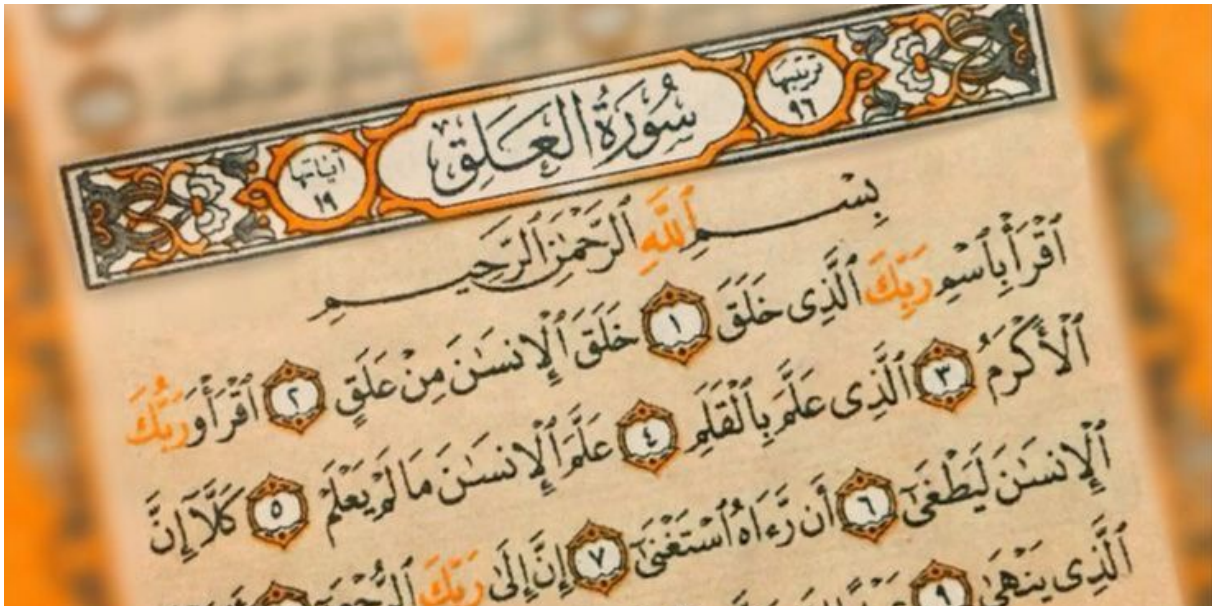 ترتيبها
٩٦
سُورَةُ العَلَقِ
آياتها
١٩
بِسْمِ ٱللَّهِ ٱلرَّحْمَٰنِ ٱلرَّحِيمِ
ٱقْرَأْ بِٱسْمِ رَبِّكَ ٱلَّذِى خَلَقَ ١ خَلَقَ ٱلْإِنسَٰنَ مِنْ عَلَقٍ ٢ ٱقْرَأْ وَرَبُّكَ
ٱلْأَكْرَمُ ٣ ٱلَّذِى عَلَّمَ بِٱلْقَلَمِ ٤ عَلَّمَ ٱلْإِنسَٰنَ مَا لَمْ يَعْلَمْ ٥ كَلَّآ إِنَّ
ٱلْإِنسَٰنَ لَيَطْغَىٰٓ ٦ أَن رَّءَاهُ ٱسْتَغْنَىٰٓ ٧ إِنَّ إِلَىٰ رَبِّكَ
ٱلَّذِى يَنْهَىٰ ٩